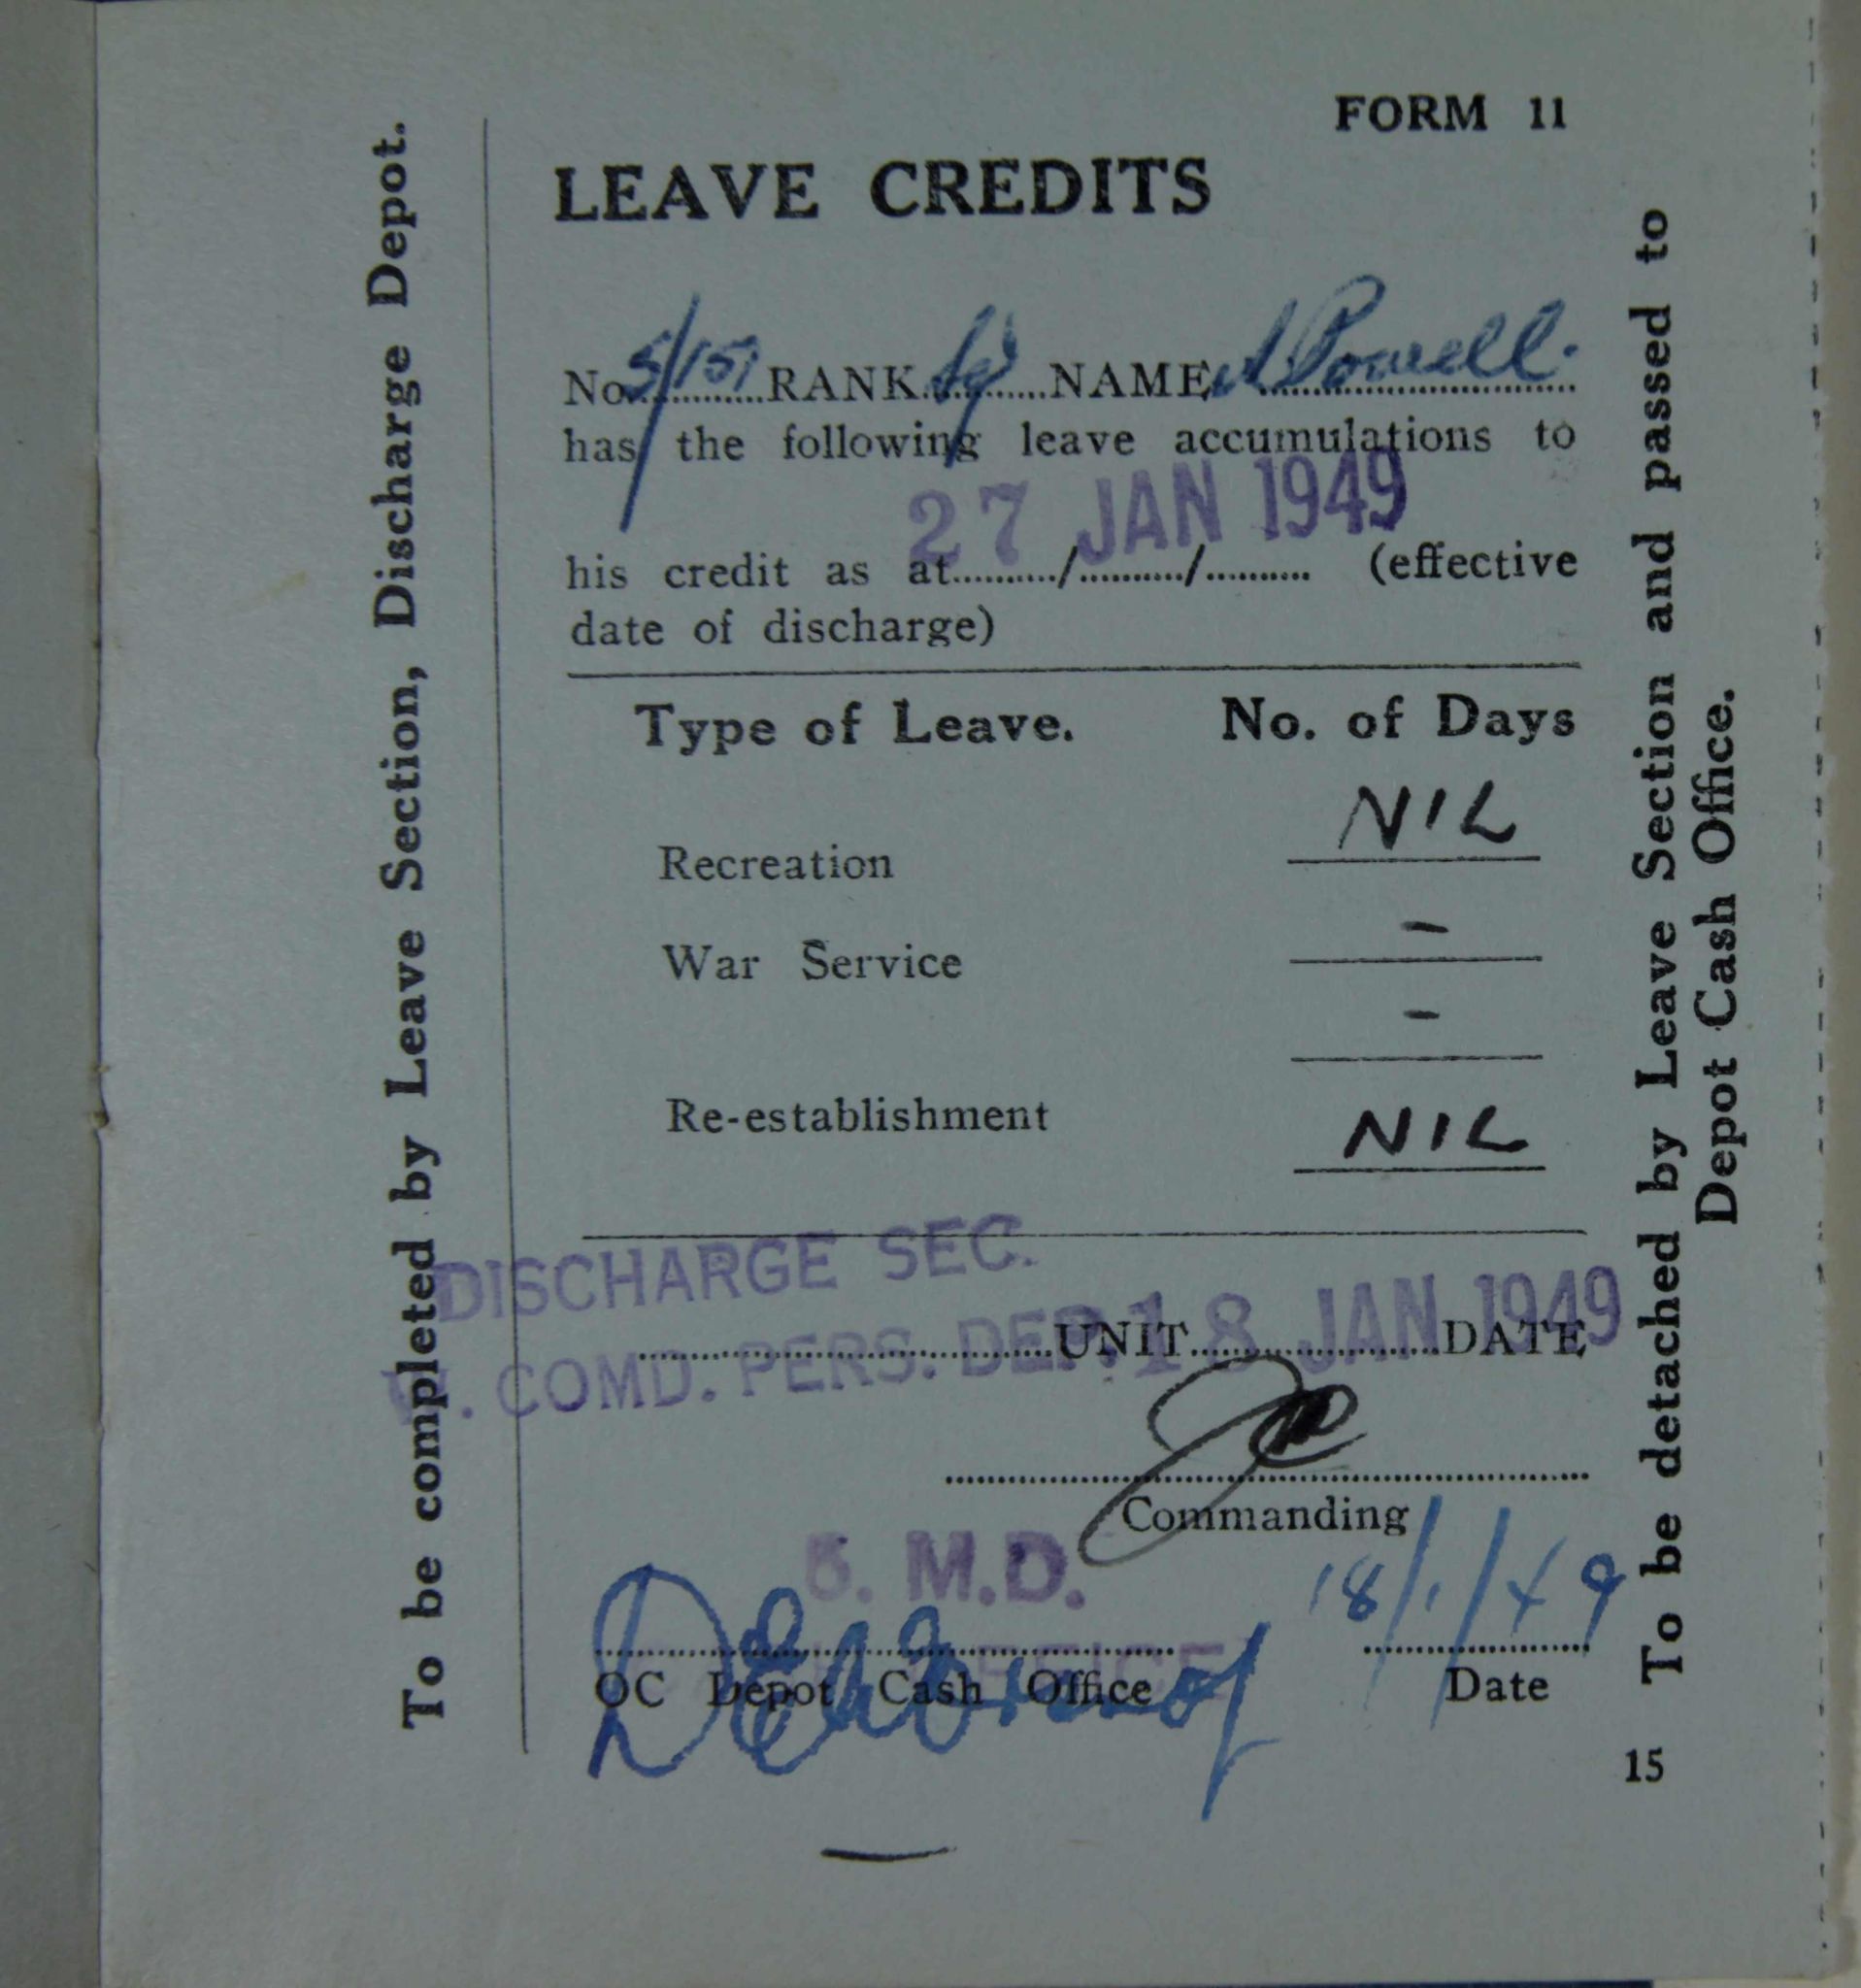 To be completed by Leave Section, Discharge Depot.
FORM 11
LEAVE CREDITS
No. 5/151 RANK NAME Powell.
has the following leave accumulations to
27 JAN 1949
his credit as at........../........../.......... (effective
date of discharge)
Type of Leave. No. of Days
NIL
Recreation
War Service -
-
Re-establishment NIL
DISCHARGE SEC.
W. COMD. PERS. DEP. UNIT 18 JAN 1949 DATE
Commanding
5. M.D.
18/1/49
OC Depot Cash Office Date
15
To be detached by Leave Section and passed to
Depot Cash Office.